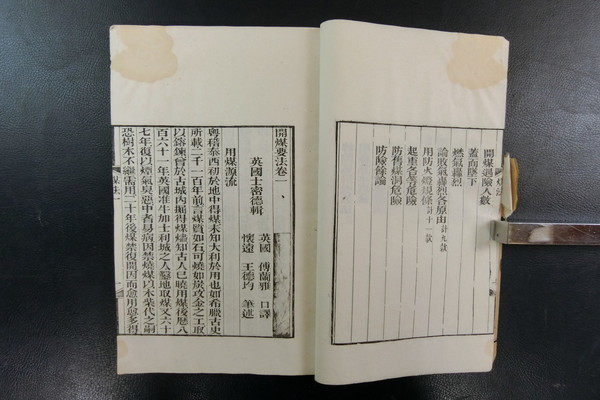 開煤遇險人數
蓋面墜下
燃氣轟烈
論致氣轟烈各原由計九款
用防火燈規條計十一款
起重各等危險
防舊煤洞危險
防險餘論
開煤要法卷一
英國士密德輯
英國 傅蘭雅 口譯
懷遠 王德均 筆述
用煤源流
粵稽泰西初於地中得煤未知大利於用也如希臘古史
所載二千一百年前言煤質如石可燒如炭攻金之工取
以鎔鍊曾於古城內掘得煤燼知古人已曉用煤後歷八
百六十一年英國准牛加士利城之人墾地取煤又六十
七年復以煙氣臭惡中者易病因禁燒煤以木柴代之嗣
恐樹木不繼需用二十年後煤禁復開因而愈用愈多得